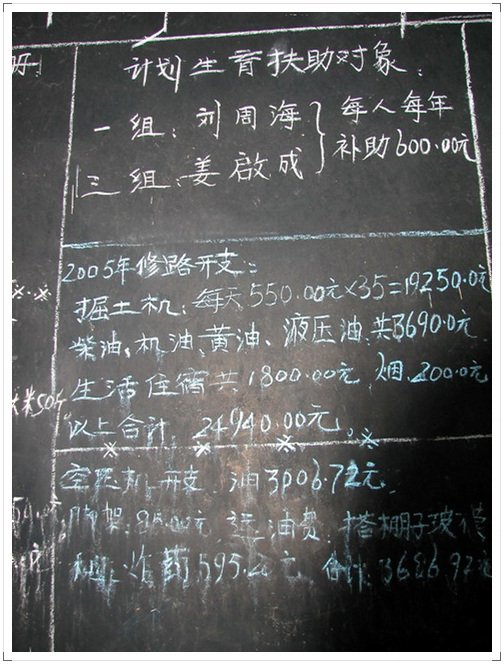 计划生育扶助对象：
一组：刘周海 每人每年
三组、姜啟成 补助600.00元
2005年修路开支：
掘土机：每天550.00元×35=19250.0元
柴油、机油、黄油、液压油、共3690.0元
生活住宿共1800.00元、烟、200.00元
以上合计：24940.00元。
空压机开支、油3906.72元、
元、运油费、搭棚子
炸药595.2元 合计：3686.92元
米50斤